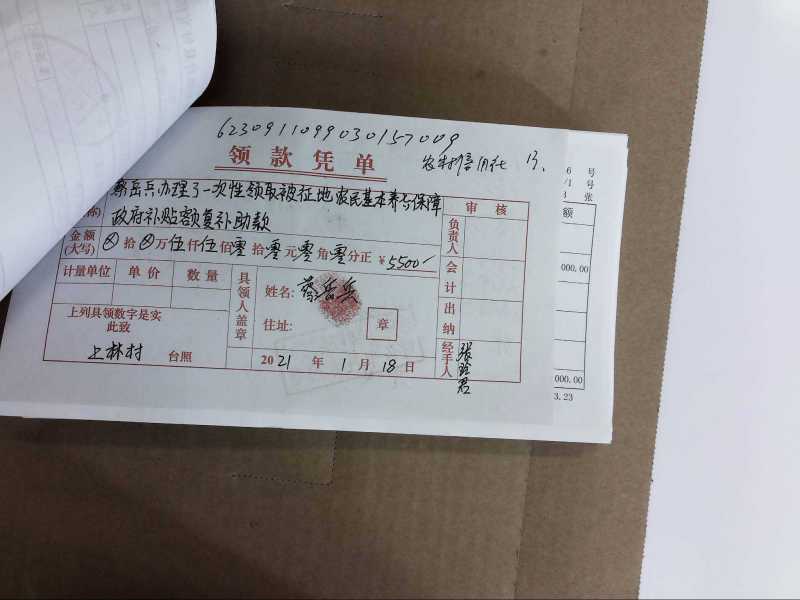 6230911099030157009
农村信用社
领款凭单
蔡岳兵办理了一次性领取被征地农民基本养老保障
称)
政府补贴额复补助款
审核
负责人
金额
(大写)
⊗拾⊗万伍仟伍佰零拾零元零角零分正 ¥5500/
会计
计量单位 单价 数量
具领人盖章
姓名: 蔡岳兵
住址:
章
出纳
上列具领数字是实
此致
上林村 台照
2021年1月18日
经手人
6 号
/1 号
张
额
000.00
000.00
3.23